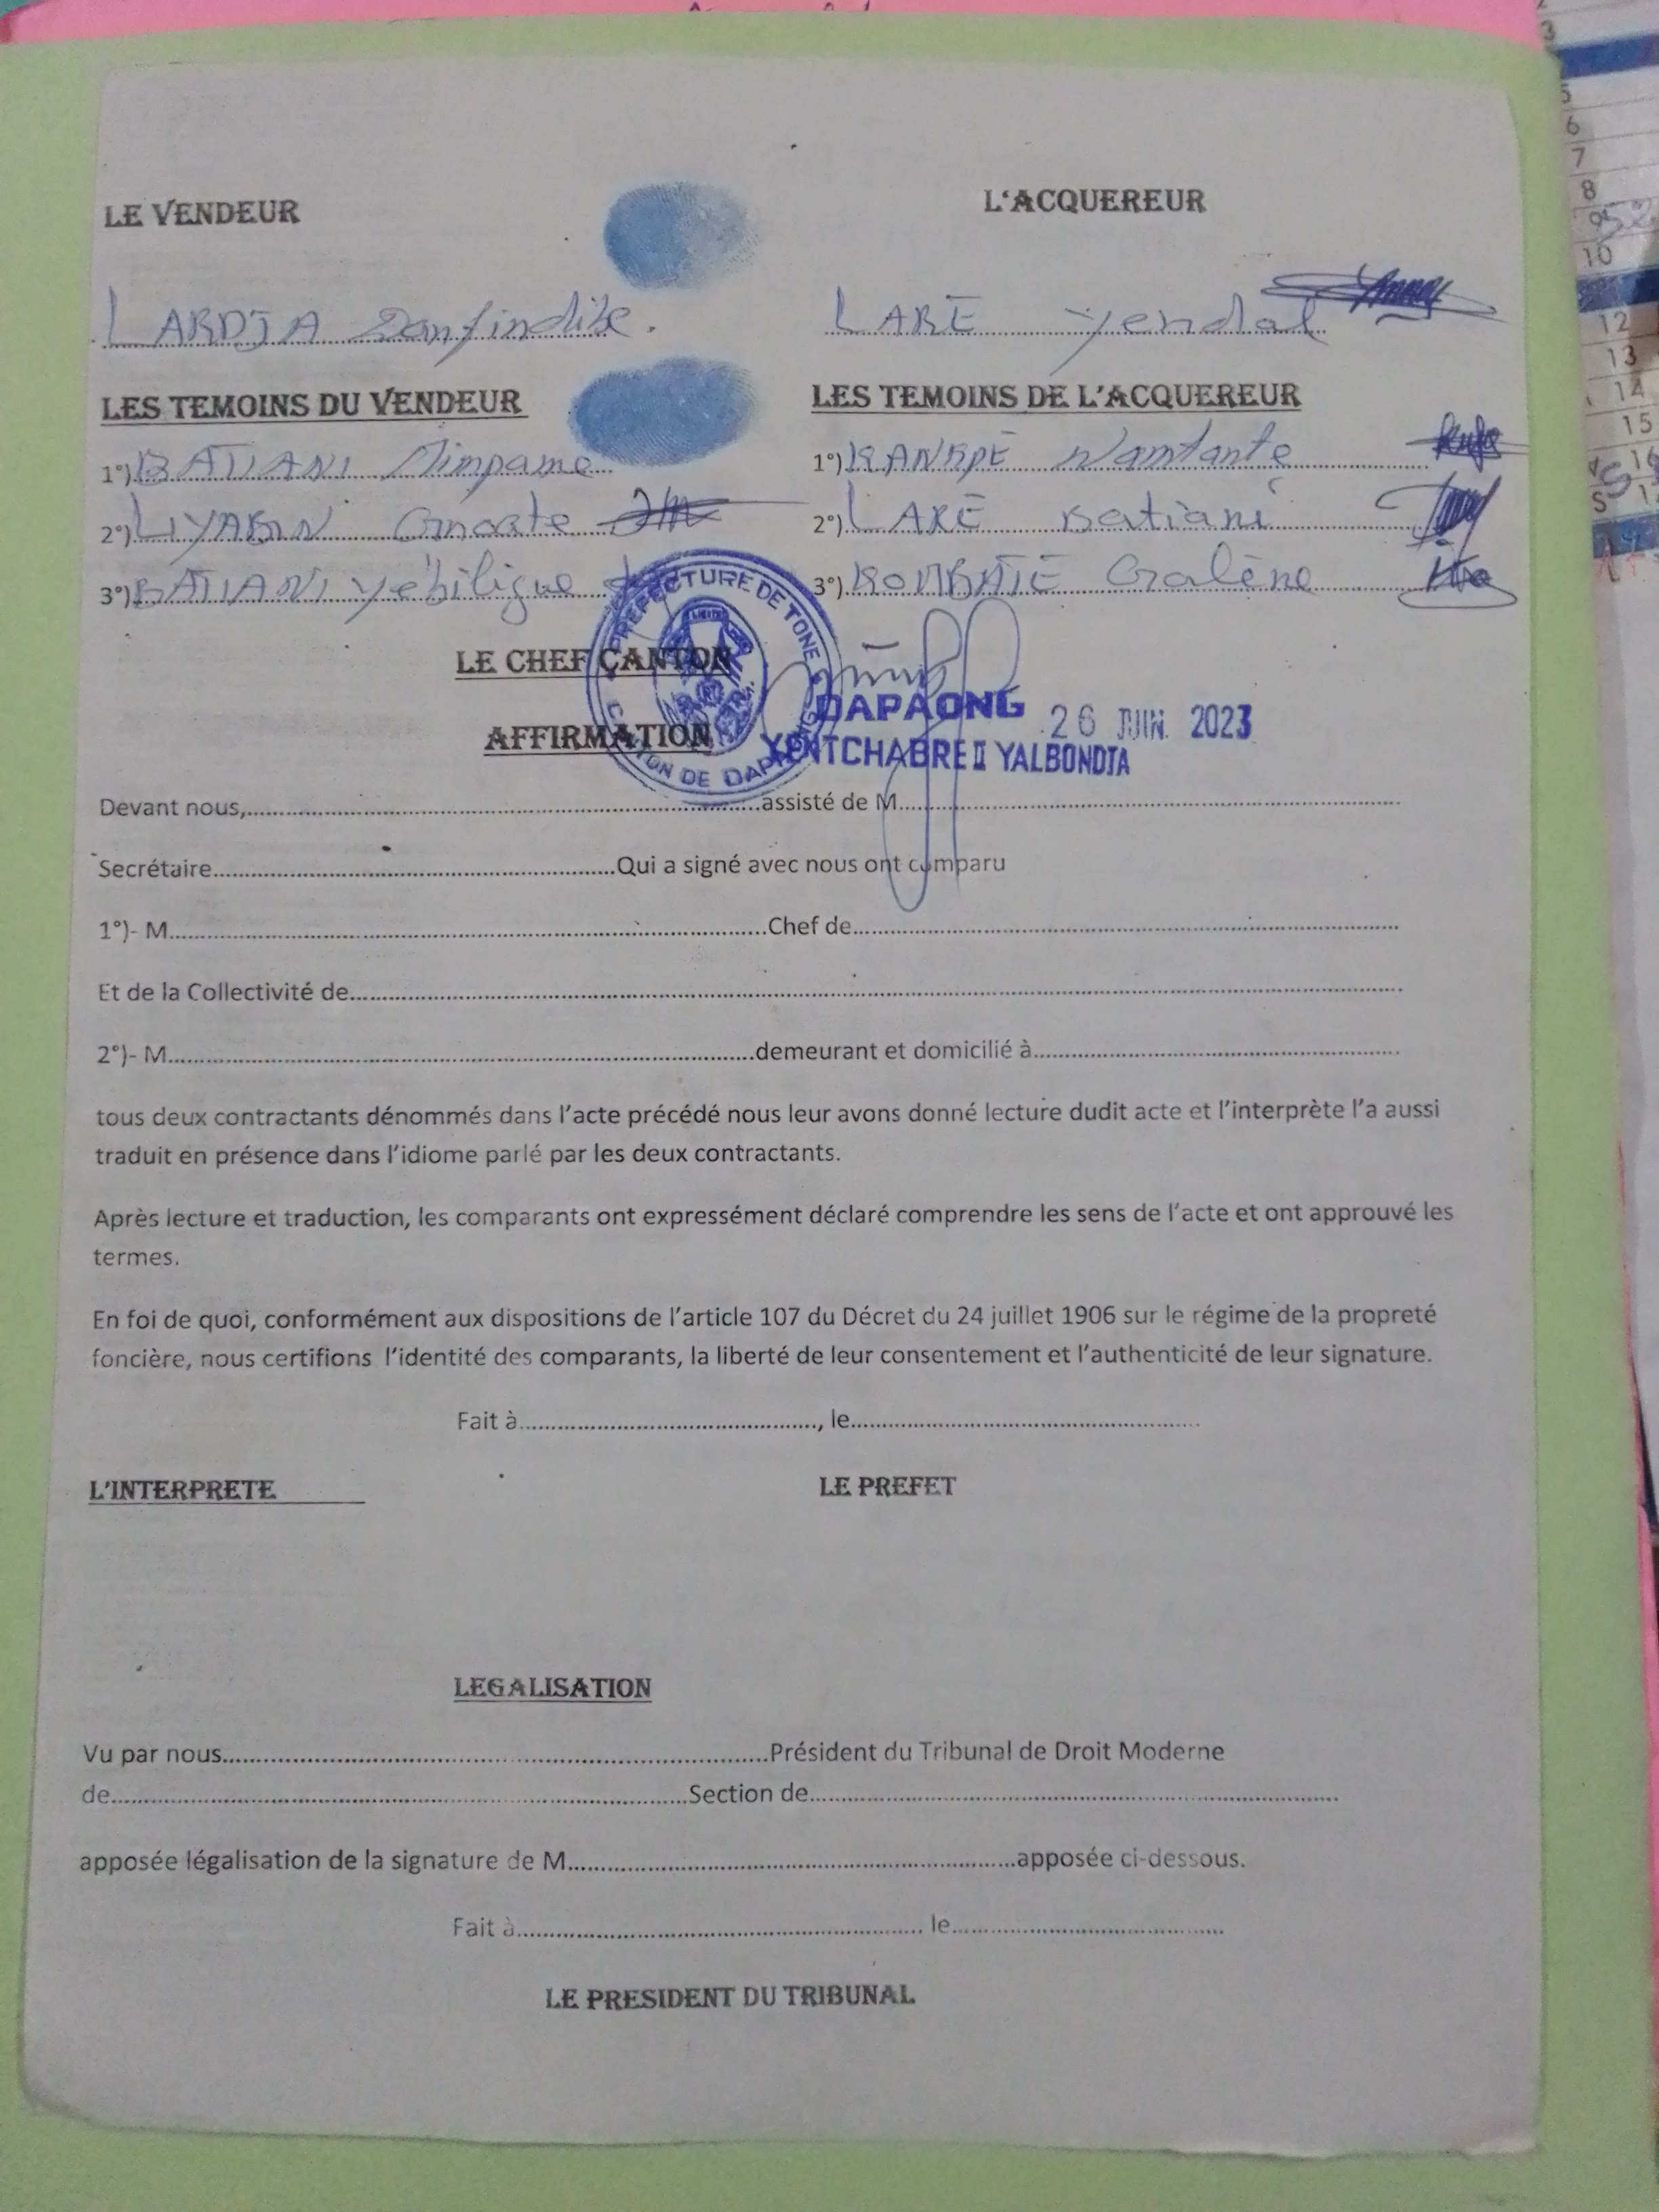 LE VENDEUR
L'ACQUEREUR
LARDJA
LARE Yendal
LES TEMOINS DU VENDEUR
LES TEMOINS DE L'ACQUEREUR
1°) BATIANI
1°) KANKPE Namtante
2°) LIYABIN
2°) LARE Batiani
3°) BATIANI Yébiligue
3°) KOMBATE
PREFECTURE DE TONE
CANTON DE DAPAONG
LE CHEF CANTON
DAPAONG
26 JUIN 2023
YENTCHABRE II YALBONDJA
AFFIRMATION
Devant nous,..........assisté de M..........
Secrétaire..........Qui a signé avec nous ont comparu
1°)- M..........Chef de..........
Et de la Collectivité de..........
2°)- M..........demeurant et domicilié à..........
tous deux contractants dénommés dans l'acte précédé nous leur avons donné lecture dudit acte et l'interprète l'a aussi
traduit en présence dans l'idiome parlé par les deux contractants.
Après lecture et traduction, les comparants ont expressément déclaré comprendre les sens de l'acte et ont approuvé les
termes.
En foi de quoi, conformément aux dispositions de l'article 107 du Décret du 24 juillet 1906 sur le régime de la propreté
foncière, nous certifions l'identité des comparants, la liberté de leur consentement et l'authenticité de leur signature.
Fait à.........., le..........
L'INTERPRETE
LE PREFET
LEGALISATION
Vu par nous..........Président du Tribunal de Droit Moderne
de..........Section de..........
apposée légalisation de la signature de M..........apposée ci-dessous.
Fait à.......... le..........
LE PRESIDENT DU TRIBUNAL